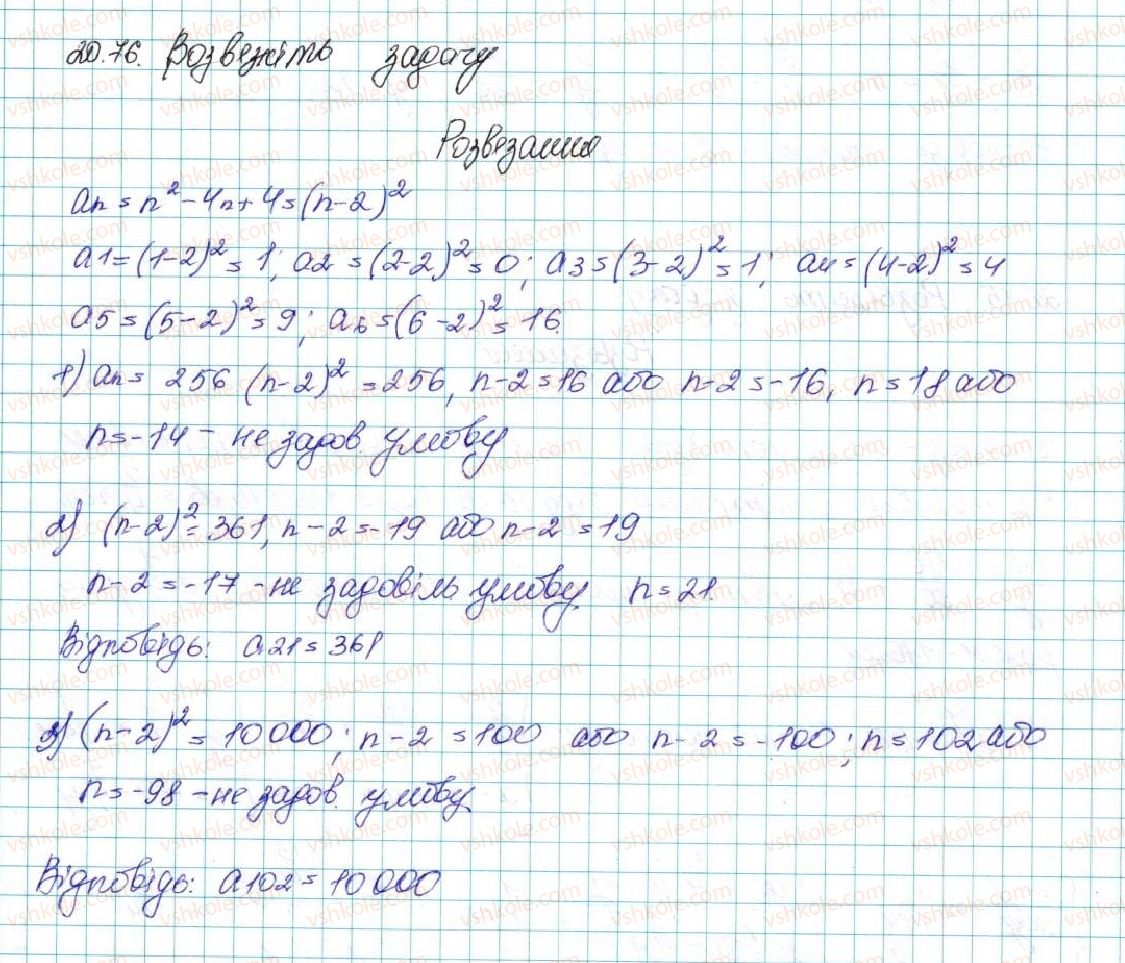 20.76. Возвежіть задачу
Розвезання
an = n² - 4n + 4 = (n-2)²
a1 = (1-2)² = 1; a2 = (2-2)² = 0; a3 = (3-2)² = 1; a4 = (4-2)² = 4
a5 = (5-2)² = 9; a6 = (6-2)² = 16.
1) an = 256 (n-2)² = 256, n-2 = 16 або n-2 = -16, n = 18 або
n = -14 - не задов. умову
2) (n-2)² = 361, n-2 = -19 або n-2 = 19
n-2 = -17 - не задовіль умову n = 21.
Відповідь: a21 = 361
3) (n-2)² = 10000; n-2 = 100 або n-2 = -100; n = 102 або
n = -98 - не задов. умову
Відповідь: a102 = 10000
vshkole.com